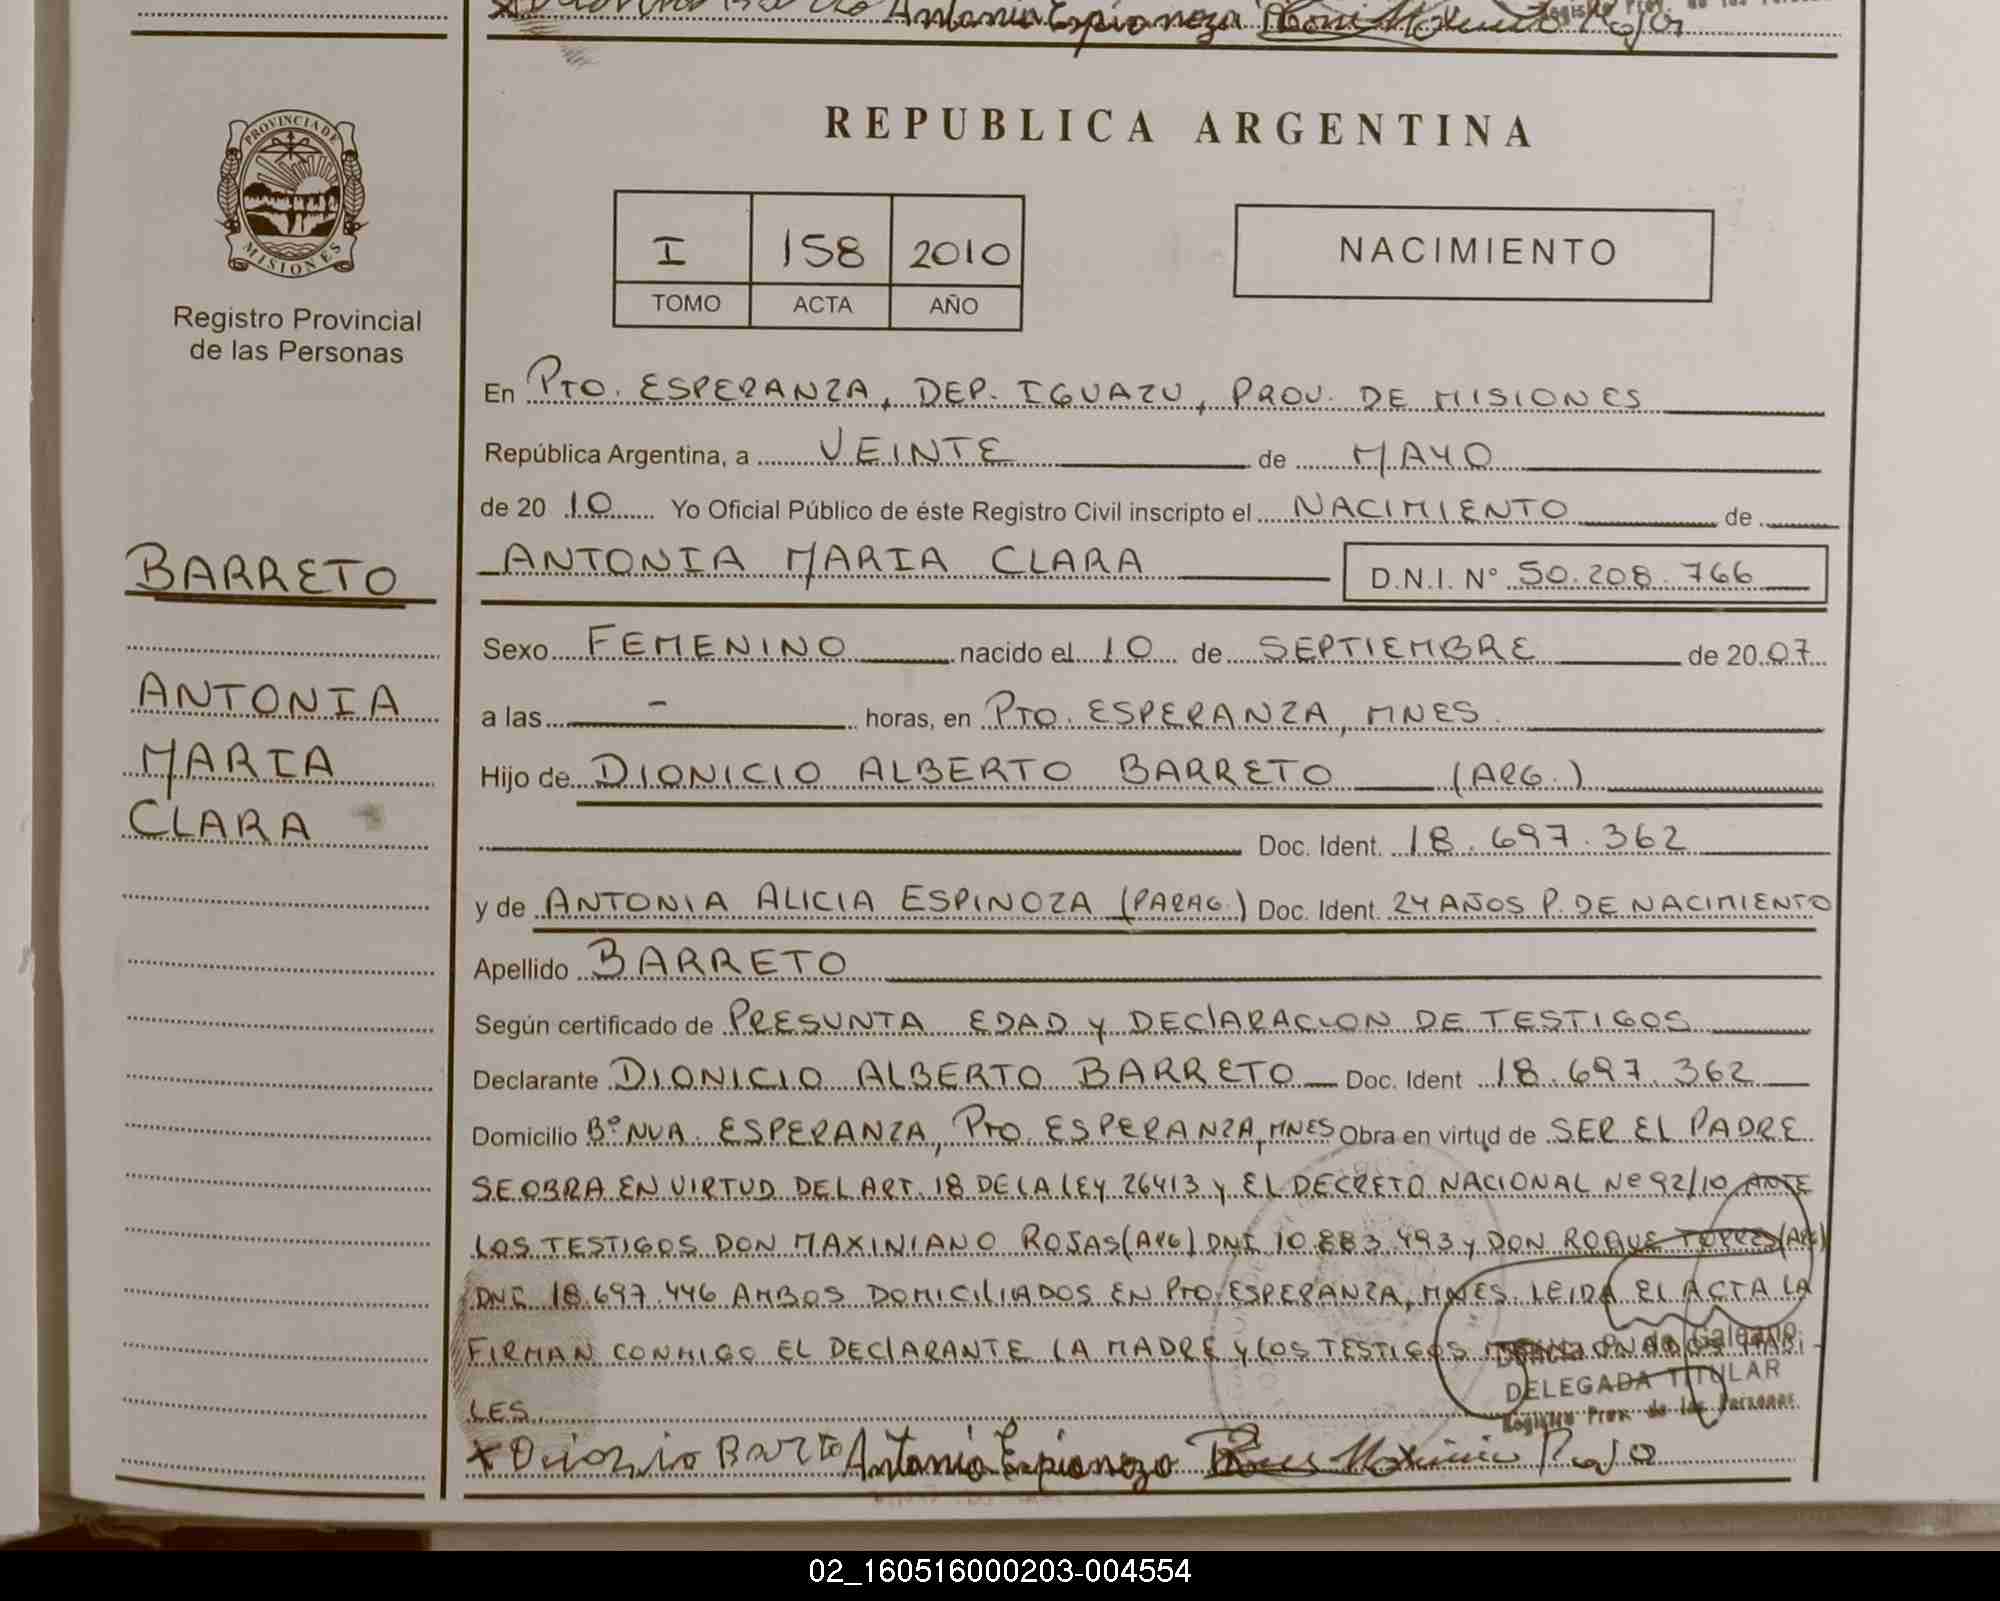 Antonia Espianeza
REPUBLICA ARGENTINA
PROVINCIA DE
MISIONES
Registro Provincial
de las Personas
I 158 2010
TOMO ACTA AÑO
NACIMIENTO
En PTO. ESPERANZA, DEP. IGUAZU, PROV. DE MISIONES
República Argentina, a VEINTE de MAYO
de 20 10 Yo Oficial Público de éste Registro Civil inscripto el NACIMIENTO de
ANTONIA MARIA CLARA D.N.I. N° 50.208.766
BARRETO
ANTONIA
MARIA
CLARA
Sexo FEMENINO nacido el 10 de SEPTIEMBRE de 20 07
a las - horas, en PTO. ESPERANZA, MNES.
Hijo de DIONICIO ALBERTO BARRETO (ARG.)
Doc. Ident. 18.697.362
y de ANTONIA ALICIA ESPINOZA (PARAG.) Doc. Ident. 24 AÑOS P. DE NACIMIENTO
Apellido BARRETO
Según certificado de PRESUNTA EDAD y DEClARACION DE TESTIGOS
Declarante DIONICIO ALBERTO BARRETO Doc. Ident 18.697.362
Domicilio B° NVA. ESPERANZA, PTO. ESPERANZA, MNES Obra en virtud de SER EL PADRE
SE OBRA EN VIRTUD DEL ART. 18 DE LA LEY 26413 y EL DECRETO NACIONAL Nº 92/10 ANTE
LOS TESTIGOS DON MAXINIANO ROJAS (ARG) DNI 10.883.493 y DON ROQUE TORRES (ARG)
DNI 18.697.446 AMBOS DOMICILIADOS EN PTO. ESPERANZA, MNES. LEIDA EL ACTA LA
FIRMAN CONMIGO EL DECLARANTE LA MADRE y LOS TESTIGOS
LES
Galeano
DELEGADA TITULAR
Registro Prov. de las Personas
Antonia Espianeza
02_160516000203-004554